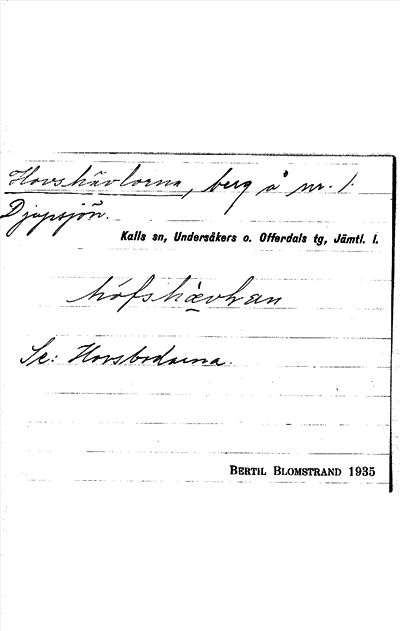 Hovskävlarna, berg å nr. 1.
Djupsjön.
Kalls sn, Undersåkers o. Offerdals tg, Jämtl. l.
hófskævḷan
Se: Hovsbodarna.
BERTIL BLOMSTRAND 1935